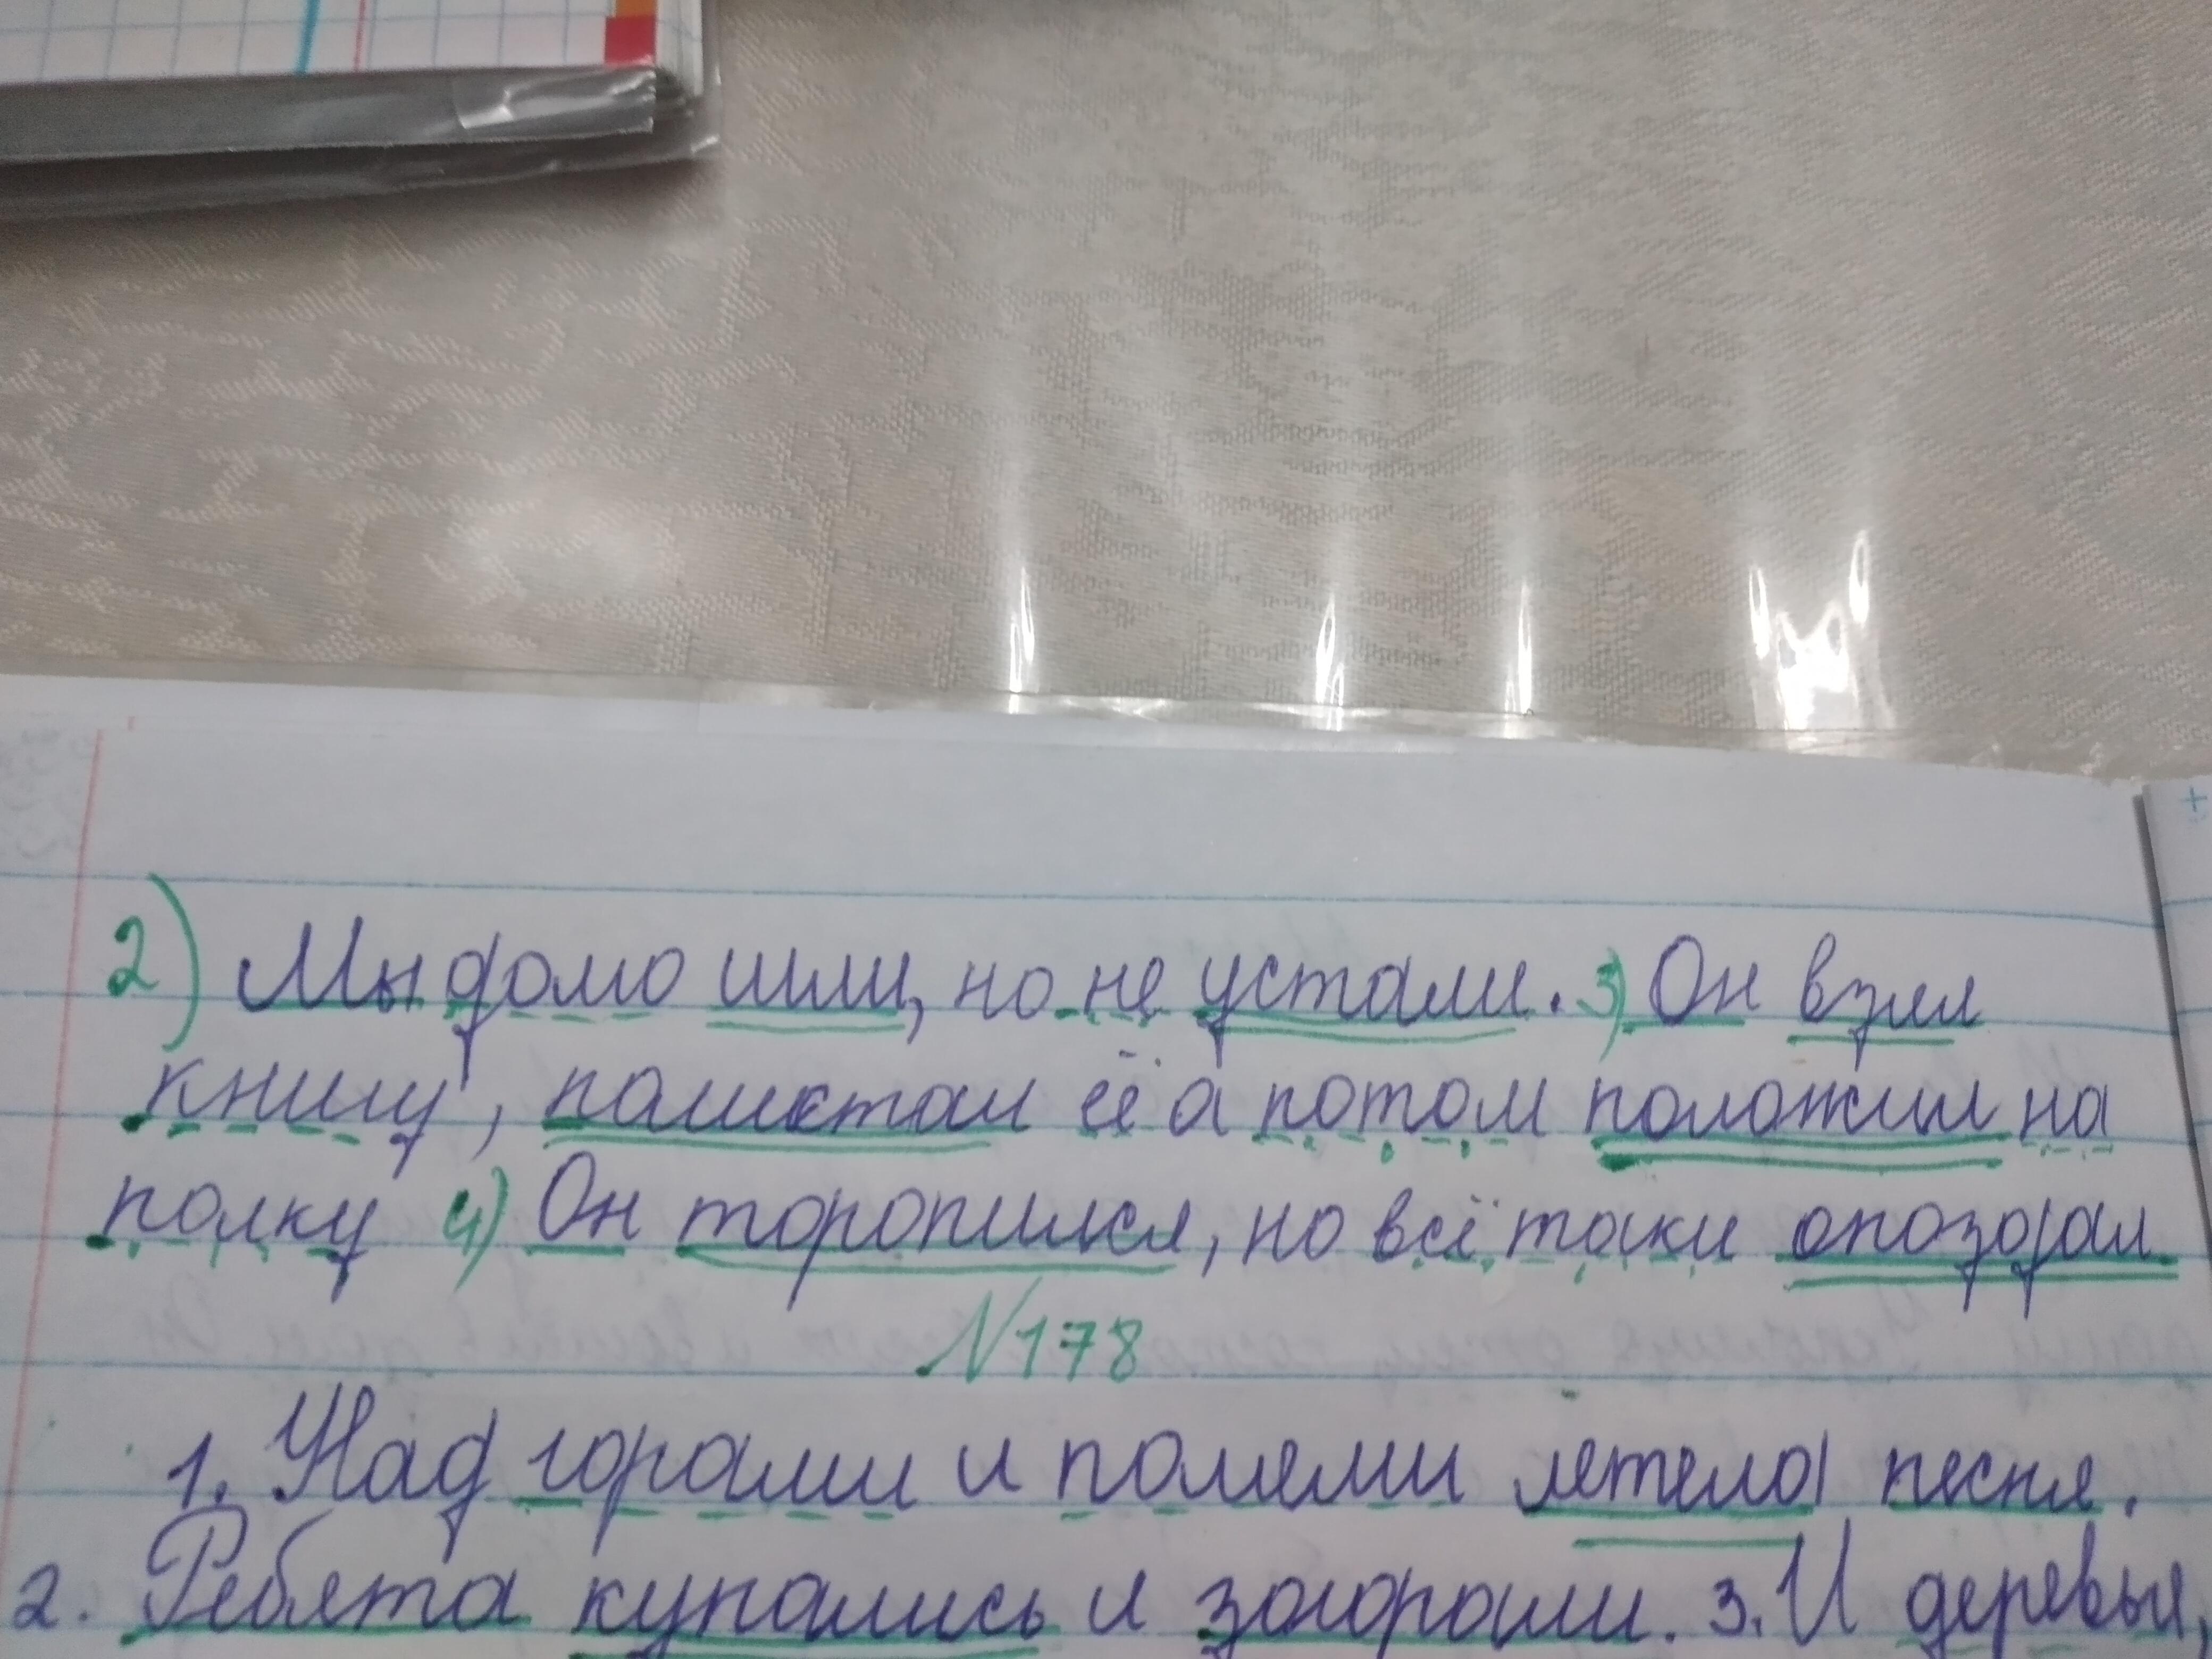 2) Мы домо шли, но не устали. 3) Он взял
книгу, полистал её а потом положил на
полку 4) Он торопился, но всё таки опоздал
№178
1. Над горами и полями летела песня.
2. Ребята купались и загорали. 3. И деревья,